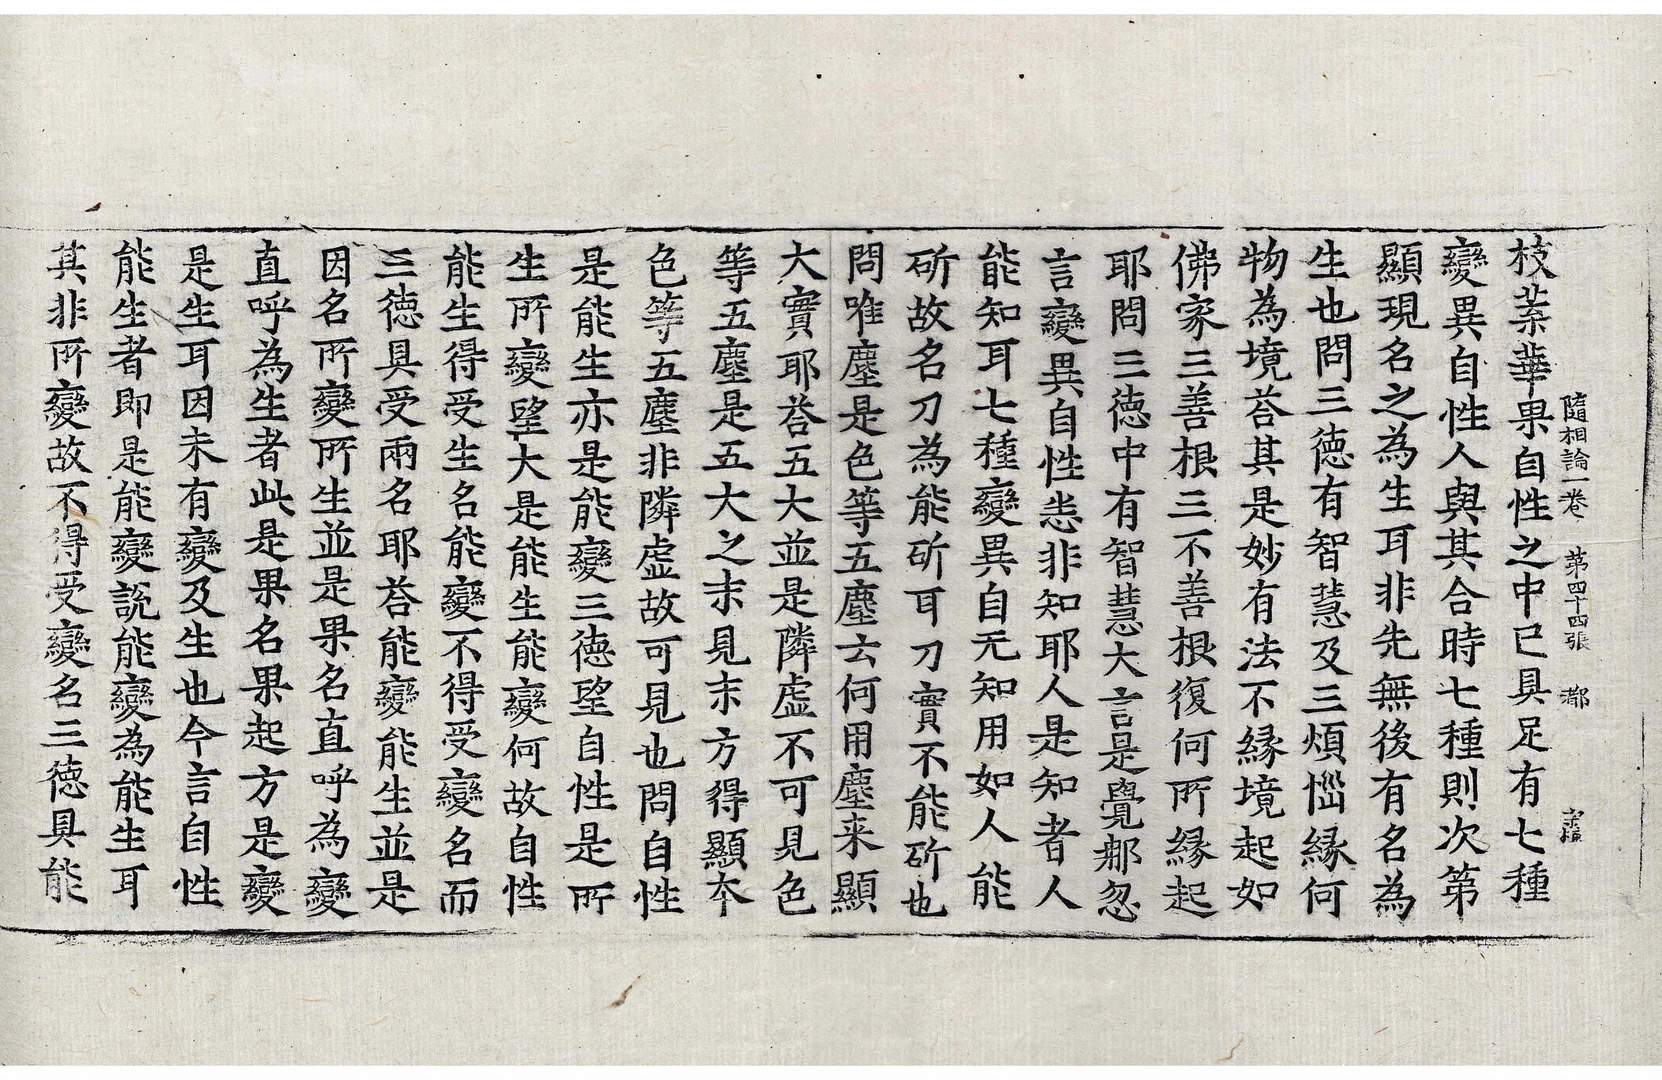 隨相論一卷 第四十四張 都
枝葉華果自性之中已具足有七種
變異自性人與其合時七種則次第
顯現名之為生耳非先無後有名為
生也問三德有智慧及三煩惱緣何
物為境荅其是妙有法不緣境起如
佛家三善根三不善根復何所緣起
耶問三德中有智慧大言是覺那忽
言變異自性恙非知耶人是知者人
能知耳七種變異自无知用如人能
斫故名刀為能斫耳刀實不能斫也
問唯塵是色等五塵云何用塵来顯
大實耶荅五大並是隣虛不可見色
等五塵是五大之末見末方得顯本
色等五塵非隣虛故可見也問自性
是能生亦是能變三德望自性是所
生所變望大是能生能變何故自性
能生得受生名能變不得受變名而
三德具受兩名耶荅能變能生並是
因名所變所生並是果名直呼為變
直呼為生者此是果名果起方是變
是生耳因未有變及生也今言自性
能生者即是能變說能變為能生耳
其非所變故不得受變名三德具能